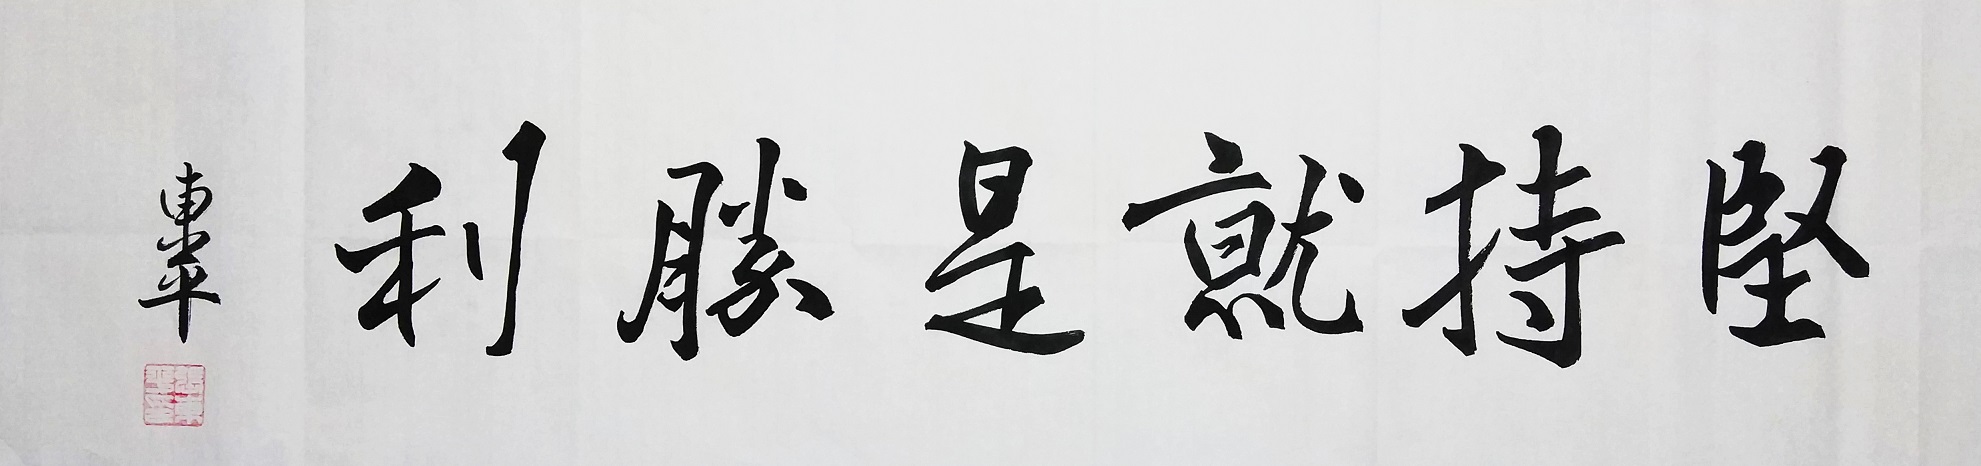 堅持就是勝利
東平